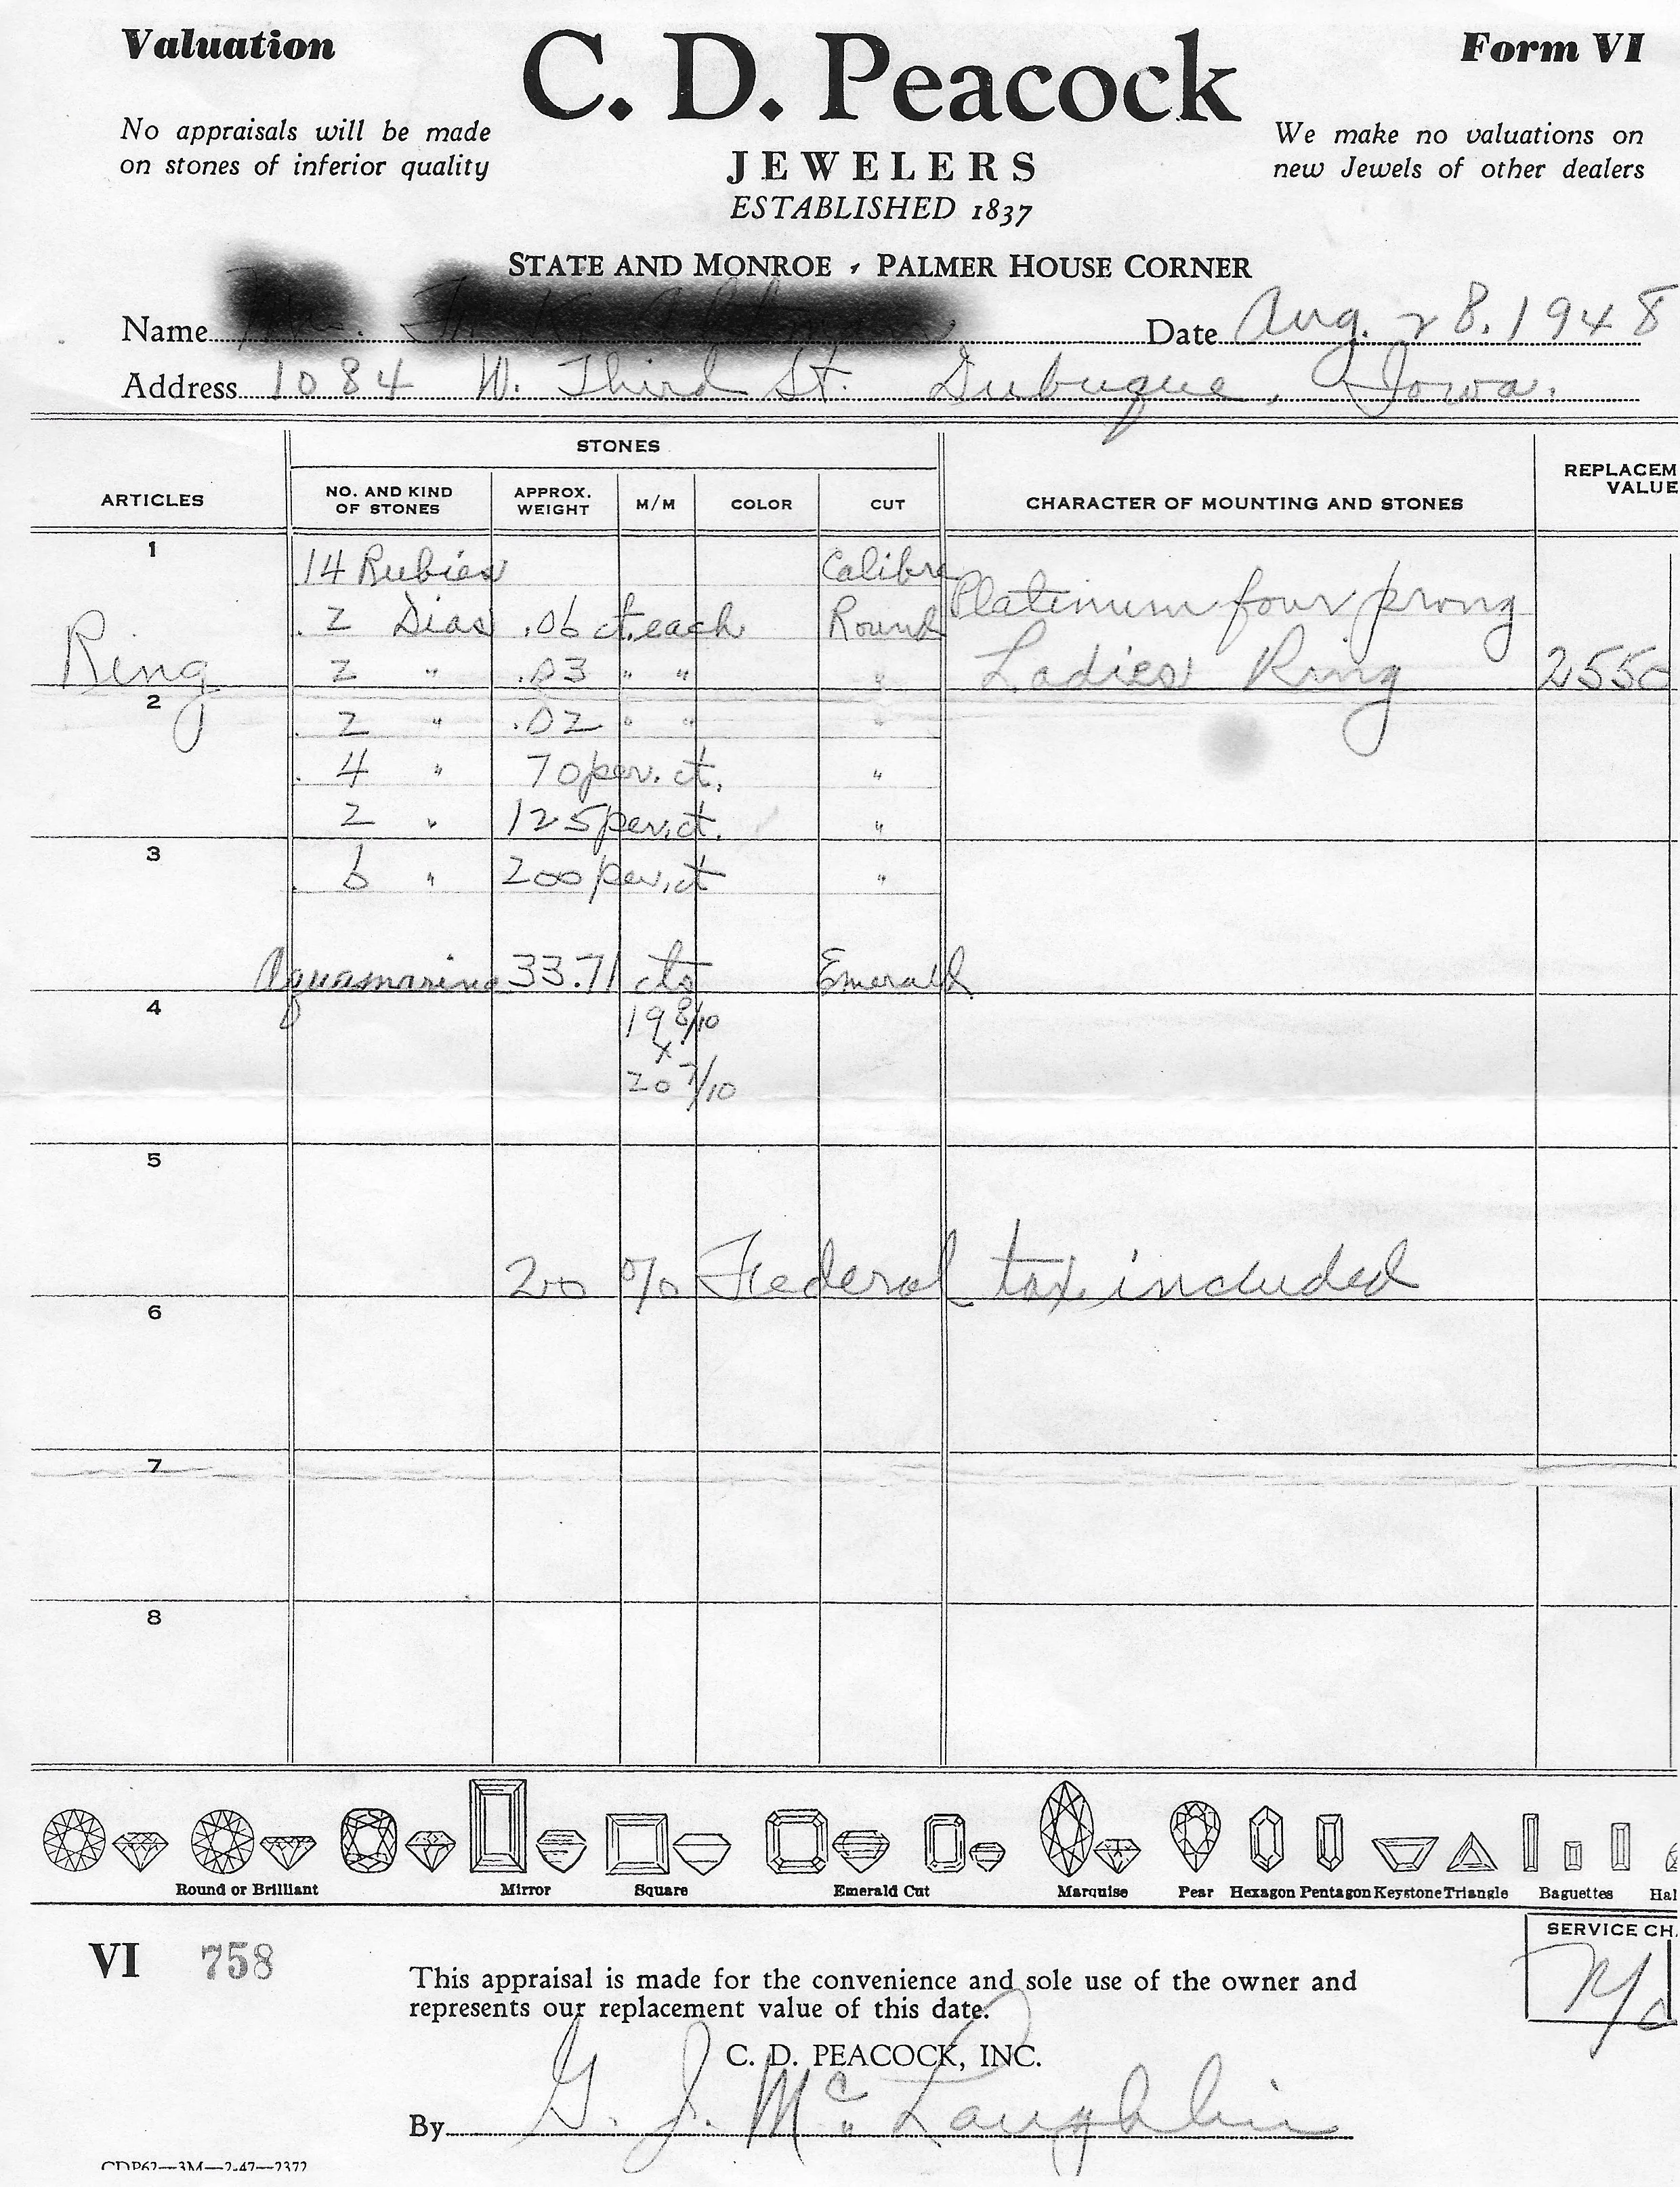 Valuation
C. D. Peacock
Form VI
No appraisals will be made
on stones of inferior quality
We make no valuations on
new Jewels of other dealers
JEWELERS
ESTABLISHED 1837
STATE AND MONROE , PALMER HOUSE CORNER
Name
Date Aug. 28. 1948
Address 1084 W. Third St. Dubuque, Iowa.
STONES
ARTICLES
NO. AND KIND
OF STONES
APPROX.
WEIGHT
M/M
COLOR
CUT
CHARACTER OF MOUNTING AND STONES
REPLACEM
VALUE
1
14 Rubies Calibre
2 Dias .06 ct. each Round
Platinum four prong
Ring
2 " .03 " " "
Ladies Ring 2550
2
2 " .02 " " "
4 " 70 per. ct. "
2 " 125 per. ct. "
3
6 " 200 per. ct "
Aquamarine 33.71 cts Emerald
4
19 8/10
x
20 7/10
5
20 % Federal tax included
6
7
8
Round or Brilliant Mirror Square Emerald Cut Marquise Pear Hexagon Pentagon Keystone Triangle Baguettes Hal
SERVICE CH
N/c
VI 758
This appraisal is made for the convenience and sole use of the owner and
represents our replacement value of this date.
C. D. PEACOCK, INC.
By G. J. McLaughlin
CDP62—3M—2-47—2372